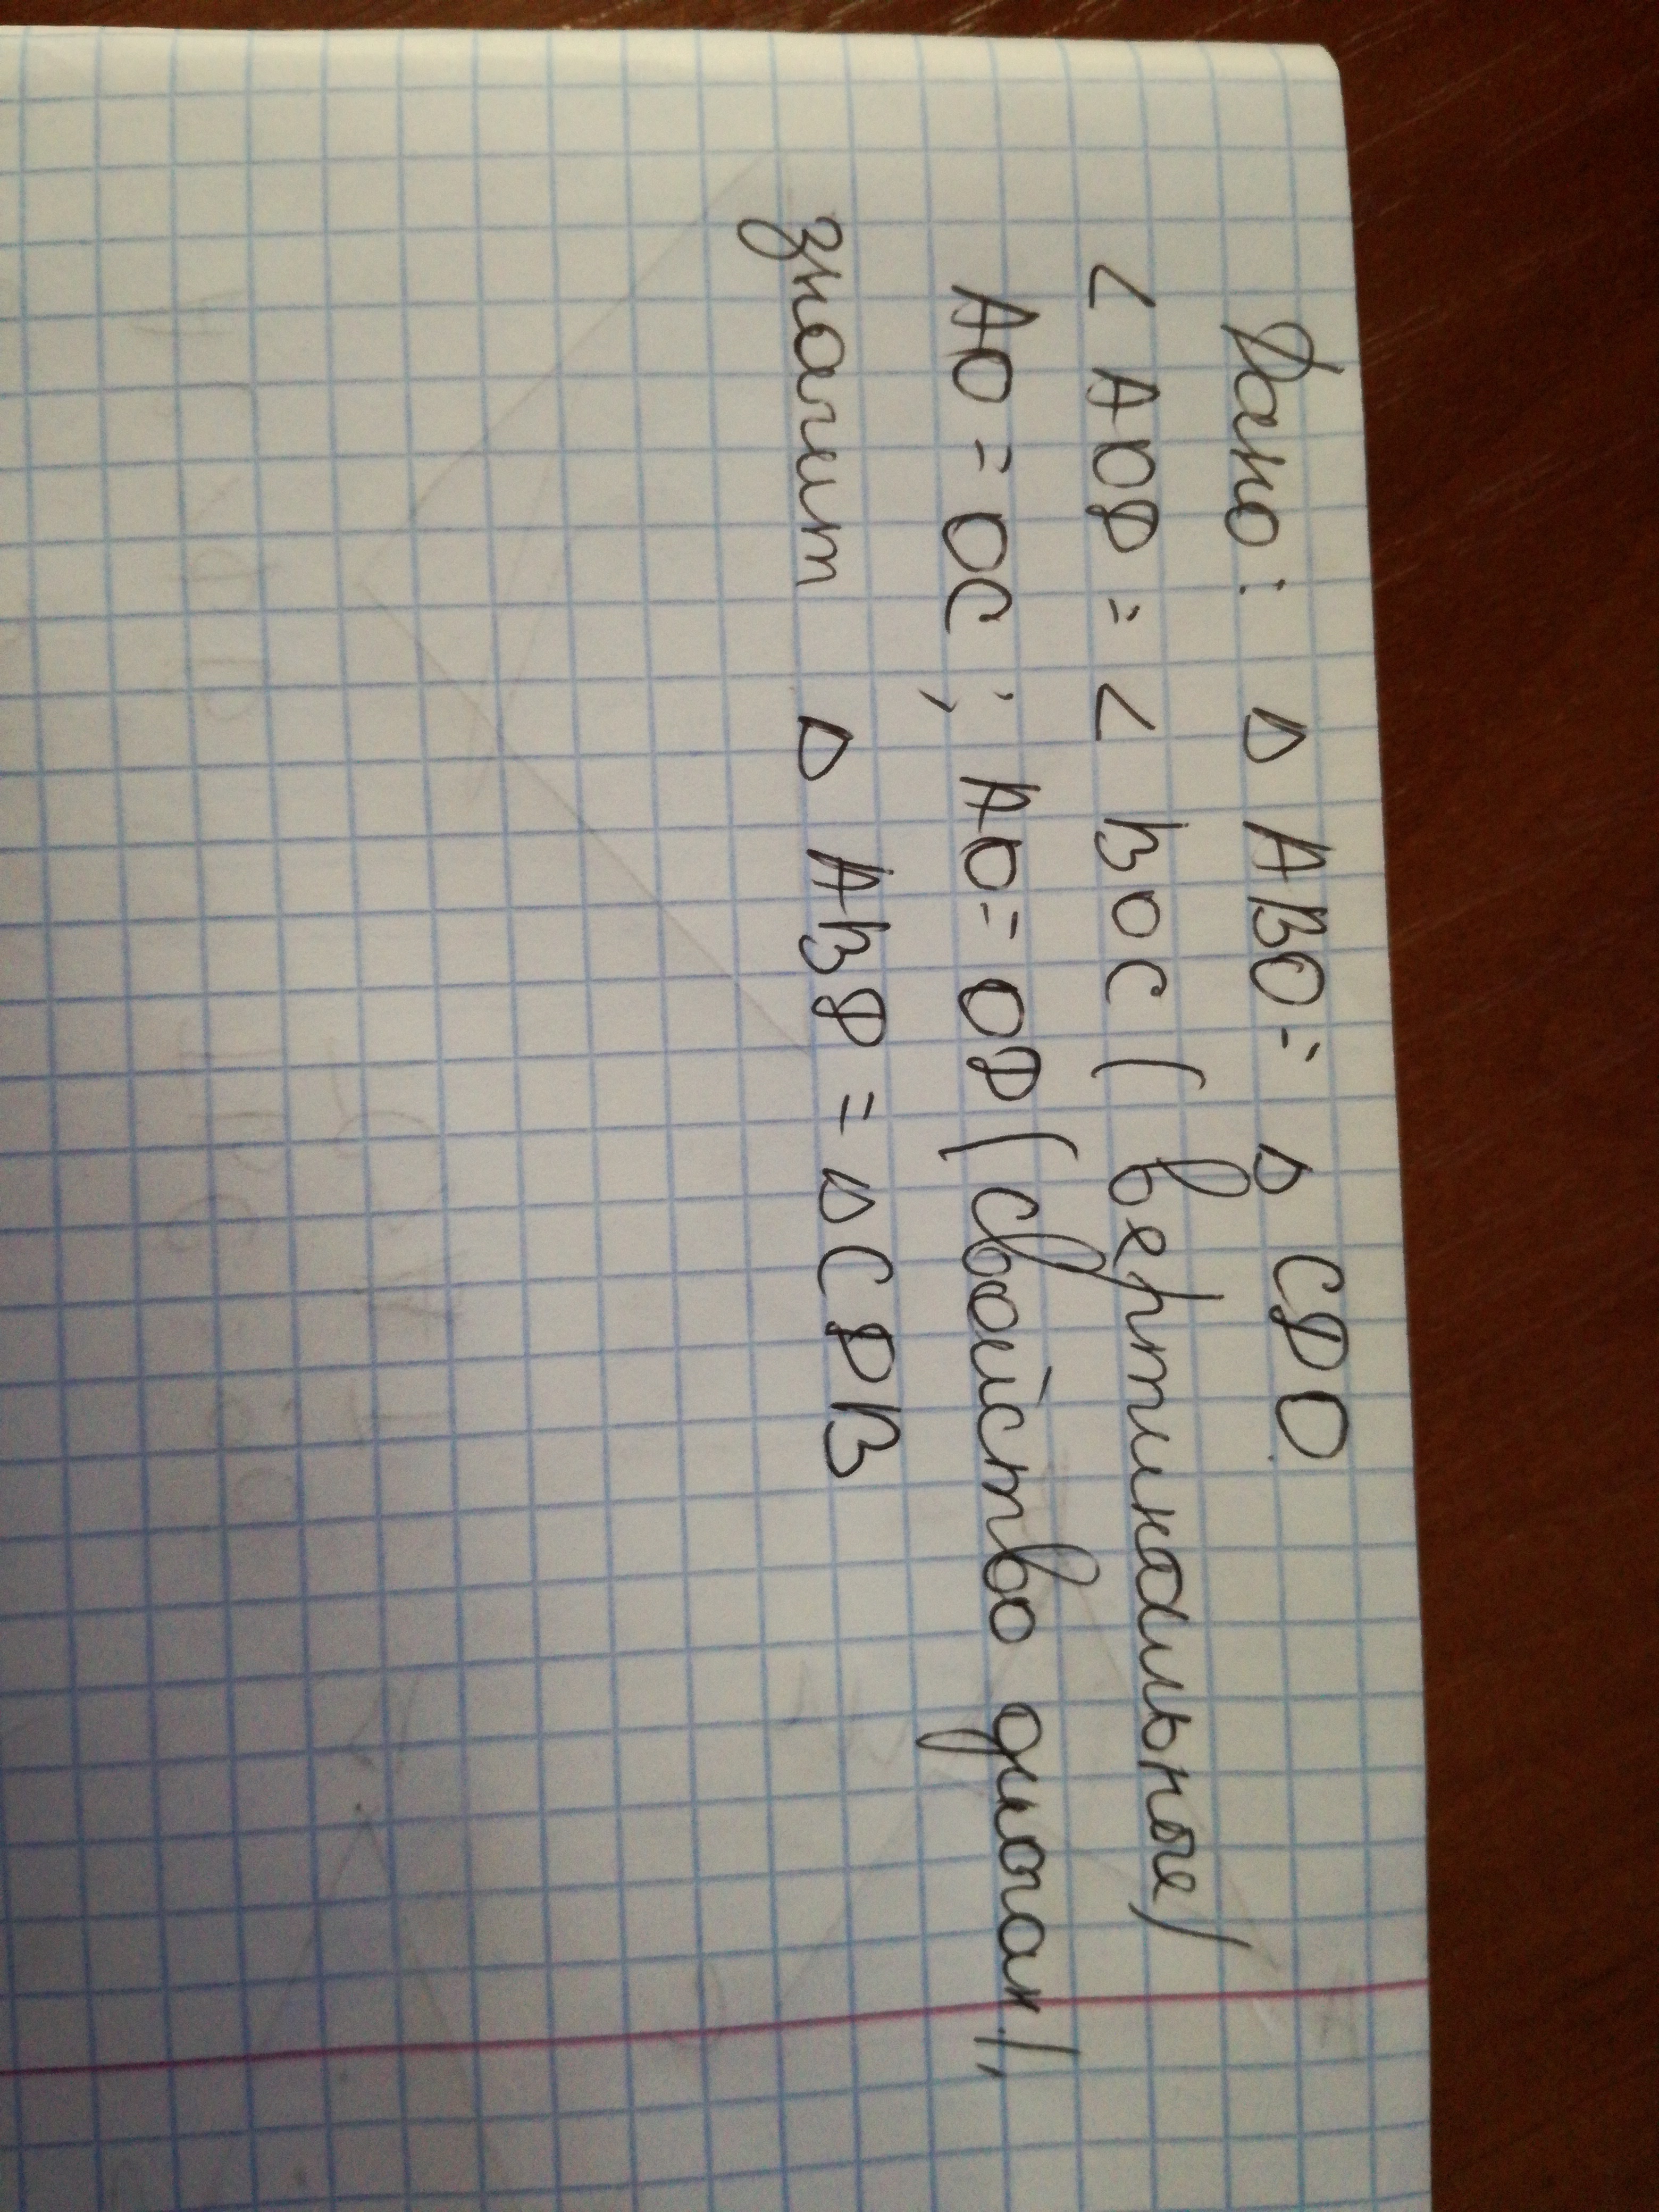 Дано: Δ ABO = Δ CDO
< AOD = < BOC (вертикальные)
AO = OC; AO = OD (свойство диагон),
значит Δ ABD = Δ CDB